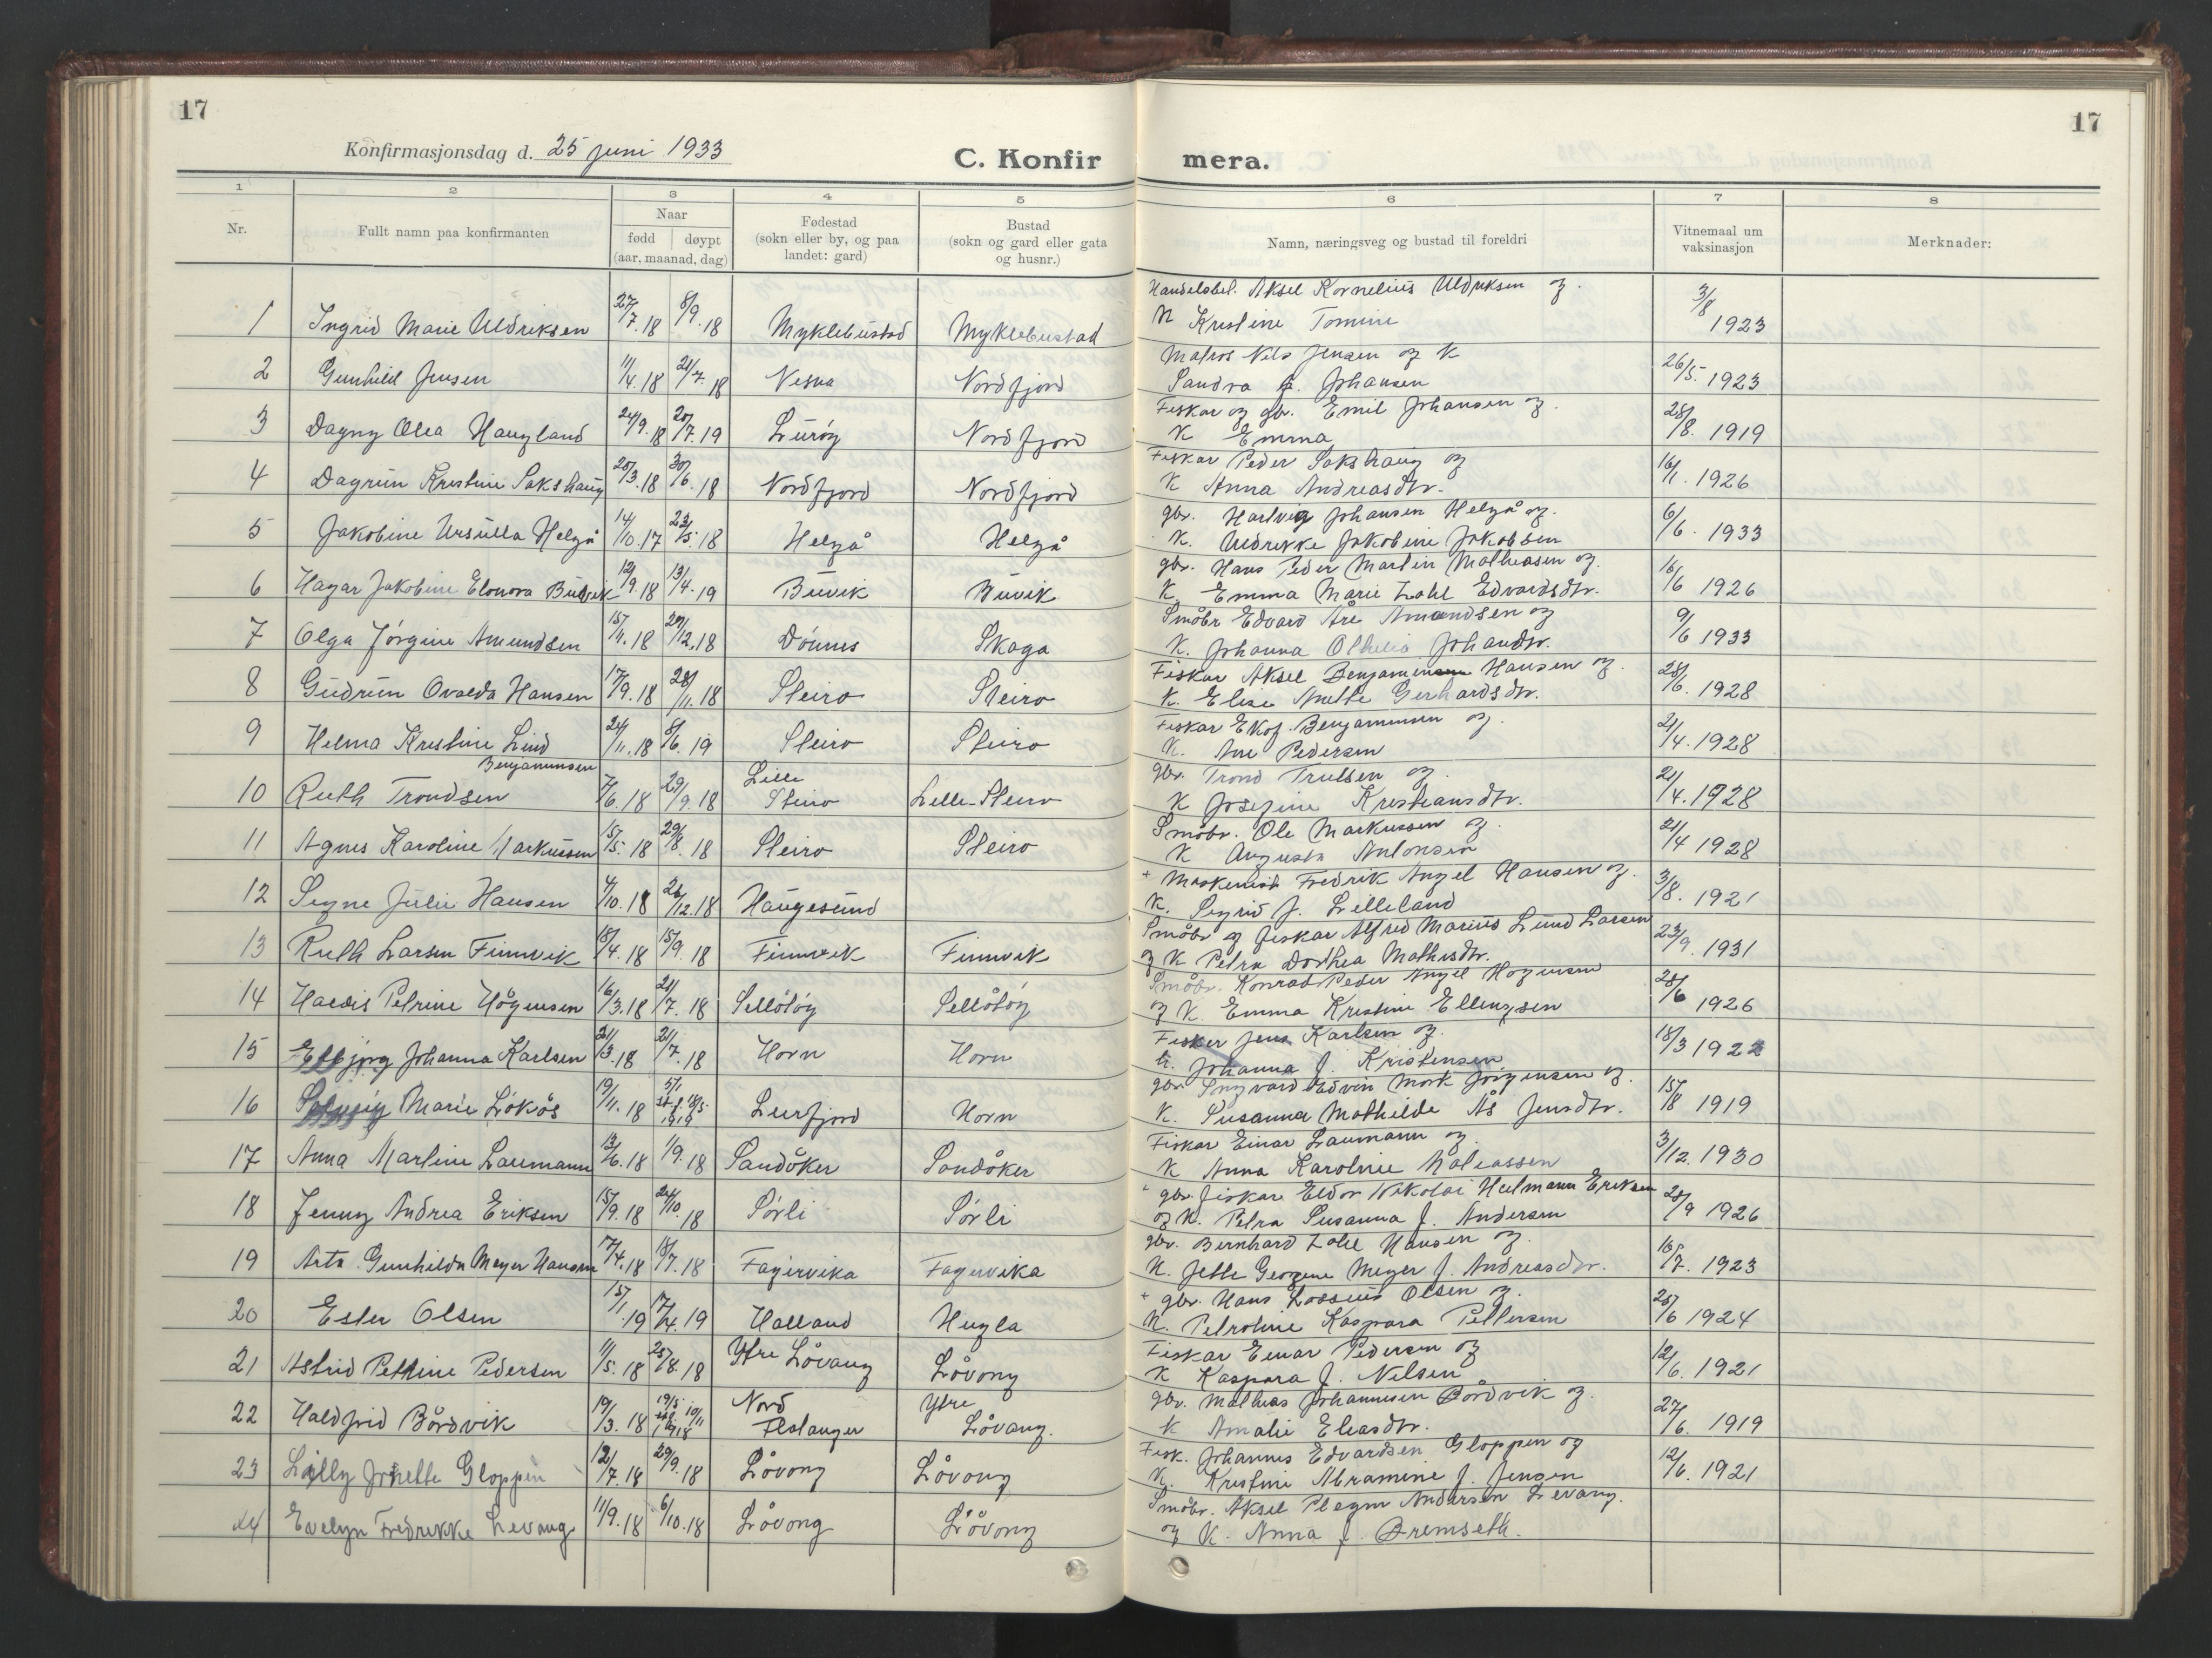 17
17
Konfirmasjonsdag d. 25 juni 1933
C. Konfir
mera.
1 2 3 4 5 6 7 8
Nr.
Fullt namn paa konfirmanten
Naar
fødd døypt
(aar, maanad, dag)
Fødestad
(sokn eller by, og paa
landet: gard)
Bustad
(sokn og gard eller gata
og husnr.)
Namn, næringsveg og bustad til foreldri
Vitnemaal um
vaksinasjon
Merknader:
Handelsbet. Aksel Kornelius Uldriksen og
1 Ingrid Marie Uldriksen 27/7.18 8/9.18 Myklebustad Myklebustad K Kristine Tomine 3/8 1923
Matros Nils Jensen og K
2 Gunhild Jensen 11/4.18 21/7.18 Nesna Nordfjord Sandra f. Johansen 26/5. 1923
Fiskar og gbr. Emil Johansen og
3 Dagny Olea Haugland 24/9.18 20/7.19 Lurøy Nordfjord K Emma 28/8. 1919
Fiskar Peder Sakshaug og
4 Dagrun Kristine Sakshaug 28/3.18 30/6.18 Nordfjord Nordfjord K Anna Andreasdtr. 16/1. 1926
gbr. Hartvig Johansen Helgå og
5 Jakobine Ursulla Helgå 14/10.17 23/5.18 Helgå Helgå K. Uldrikke Jakobine Jakobsen 6/6. 1933
gbr. Hans Peder Martin Mathiasen og
6 Hagar Jakobine Elonora Buvik 12/9.18 13/4.19 Buvik Buvik K. Emma Marie Zahl Edvardsdtr. 16/6 1926
Småbr Edvard Åre Amundsen og
7 Olga Jørgine Amundsen 15/11.18 29/12.18 Dønnes Skaga K. Johanna Othelia Johansdtr. 9/6 1933
Fiskar Aksel Benjaminsen Hansen og
8 Gudrun Ovalda Hansen 17/9.18 28/11.18 Sleiro Sleiro K. Elise Anette Gerhardsdtr. 28/6. 1928
Fiskar Ekof Benjaminsen og
9 Helma Kristine Lind 24/11.18 8/6.19 Sleiro Sleiro K. Ane Pedersen 21/4. 1928
Benjaminsen Lille gbr. Trond Trulsen og
10 Ruth Trondsen 7/6.18 29/9.18 Sleiro Lille-Sleiro K Josefine Kristiansdtr. 21/4. 1928
Småbr. Ole Markussen og
11 Agnes Karoline Markussen 15/5.18 29/8.18 Sleiro Sleiro K Augusta Antonsen 21/4 1928
+ Maskinist Fredrik Angel Hansen og
12 Signe Julie Hansen 4/10.18 26/12.18 Haugesund K. Sigrid f. Lilleland 3/8. 1921
Småbr og fiskar Alfred Marius Lund Larsen
13 Ruth Larsen Finnvik 18/4.18 15/9.18 Finnvik Finnvik og K Petra Dorthea Mathisdtr. 23/9. 1931
Småbr. Konrad Peder Angel Høgensen
14 Haldis Petrine Høgensen 16/3.18 21/7.18 Selløtøy Selløtøy og K. Emma Kristine Ellingsen 28/6 1926
Fisker Jens Karlsen og
15 Eldbjørg Johanna Karlsen 31/3.18 21/7.18 Horn Horn K. Johanna f. Kristensen 18/3 1922
gbr Ingvard Edvin Mork Jørgensen og
16 Marie Løkås 19/11.18 5/1 st.f. 18/5 1919 Leirfjord Horn K. Susanna Mathilde Ås Jensdtr. 15/8 1919
Fiskar Einar Laumann og
17 Anna Martine Laumann 13/6.18 1/9.18 Sandåker Sandåker K Anna Karoline Mathiassen 3/12. 1930
gbr. fiskar Eldor Nikolai Heilmann Eriksen
18 Jenny Andrea Eriksen 15/9.18 24/10.18 Sørli Sørli og K. Petra Susanna f. Andersen 28/9 1926
gbr. Bernhard Zahl Hansen og
19 Asta Gunhilda Meyer Hansen 17/4.18 18/7.18 Fagervika Fagervika K. Jette Georgine Meyer f. Andreasdtr. 16/7. 1923
+ gbr. Hans Lossius Olsen og
20 Ester Olsen 15/1.19 17/4.19 Halland Hugla K. Petroline Kaspara Pettersen 28/6 1924
Fiskar Einar Pedersen og
21 Astrid Pettrine Pedersen 11/5.18 25/8.18 Ytre Løvang Løvong K Kaspara f. Nilsen 12/6. 1921
Nord Ytre gbr. Mathias Johannesen Bårdvik og
22 Haldfrid Bårdvik 19/3.18 19/5 st.f. 10/11 1918 Flatanger Løvang. K Amalie Eliasdtr. 27/6. 1919
Fisk. Johannes Edvardsen Gloppen og
23 Lilly Jonette Gloppen 12/7.18 29/9.18 Løvong Løvong K. Kristine Abramine f. Jensen 12/6. 1921
Småbr. Aksel Andersen Levang.
24 Evelyn Fredrikke Levang 11/9.18 6/10.18 Løvong Løvong og K. Anna f. Bremseth.